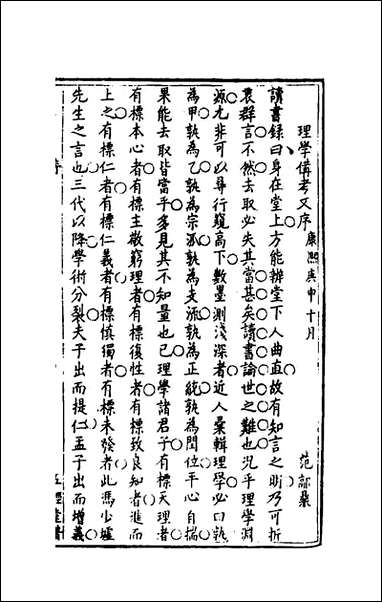 理學備考又序 康熙庚申十月 范鄗鼎
讀書錄曰身在堂上方能辨堂下人曲直故有知言之明乃可折
衷群言不然去取必失其當甚矣讀書論世之難也況乎理學淵
源尤非可以尋行窺高下數墨測淺深者近人彙輯理學必曰孰
為甲孰為乙孰為宗派孰為支流孰為正統孰為閏位平心自揣
果能去取皆當乎多見其不知量也已理學諸君子有標天理者
有標本心者有標主敬窮理者有標復性者有標致良知者進而
上之有標仁者有標仁義者有標慎獨者有標未發者此馮少墟
先生之言也三代以降學術分裂夫子出而提仁孟子出而增義
序
五經堂